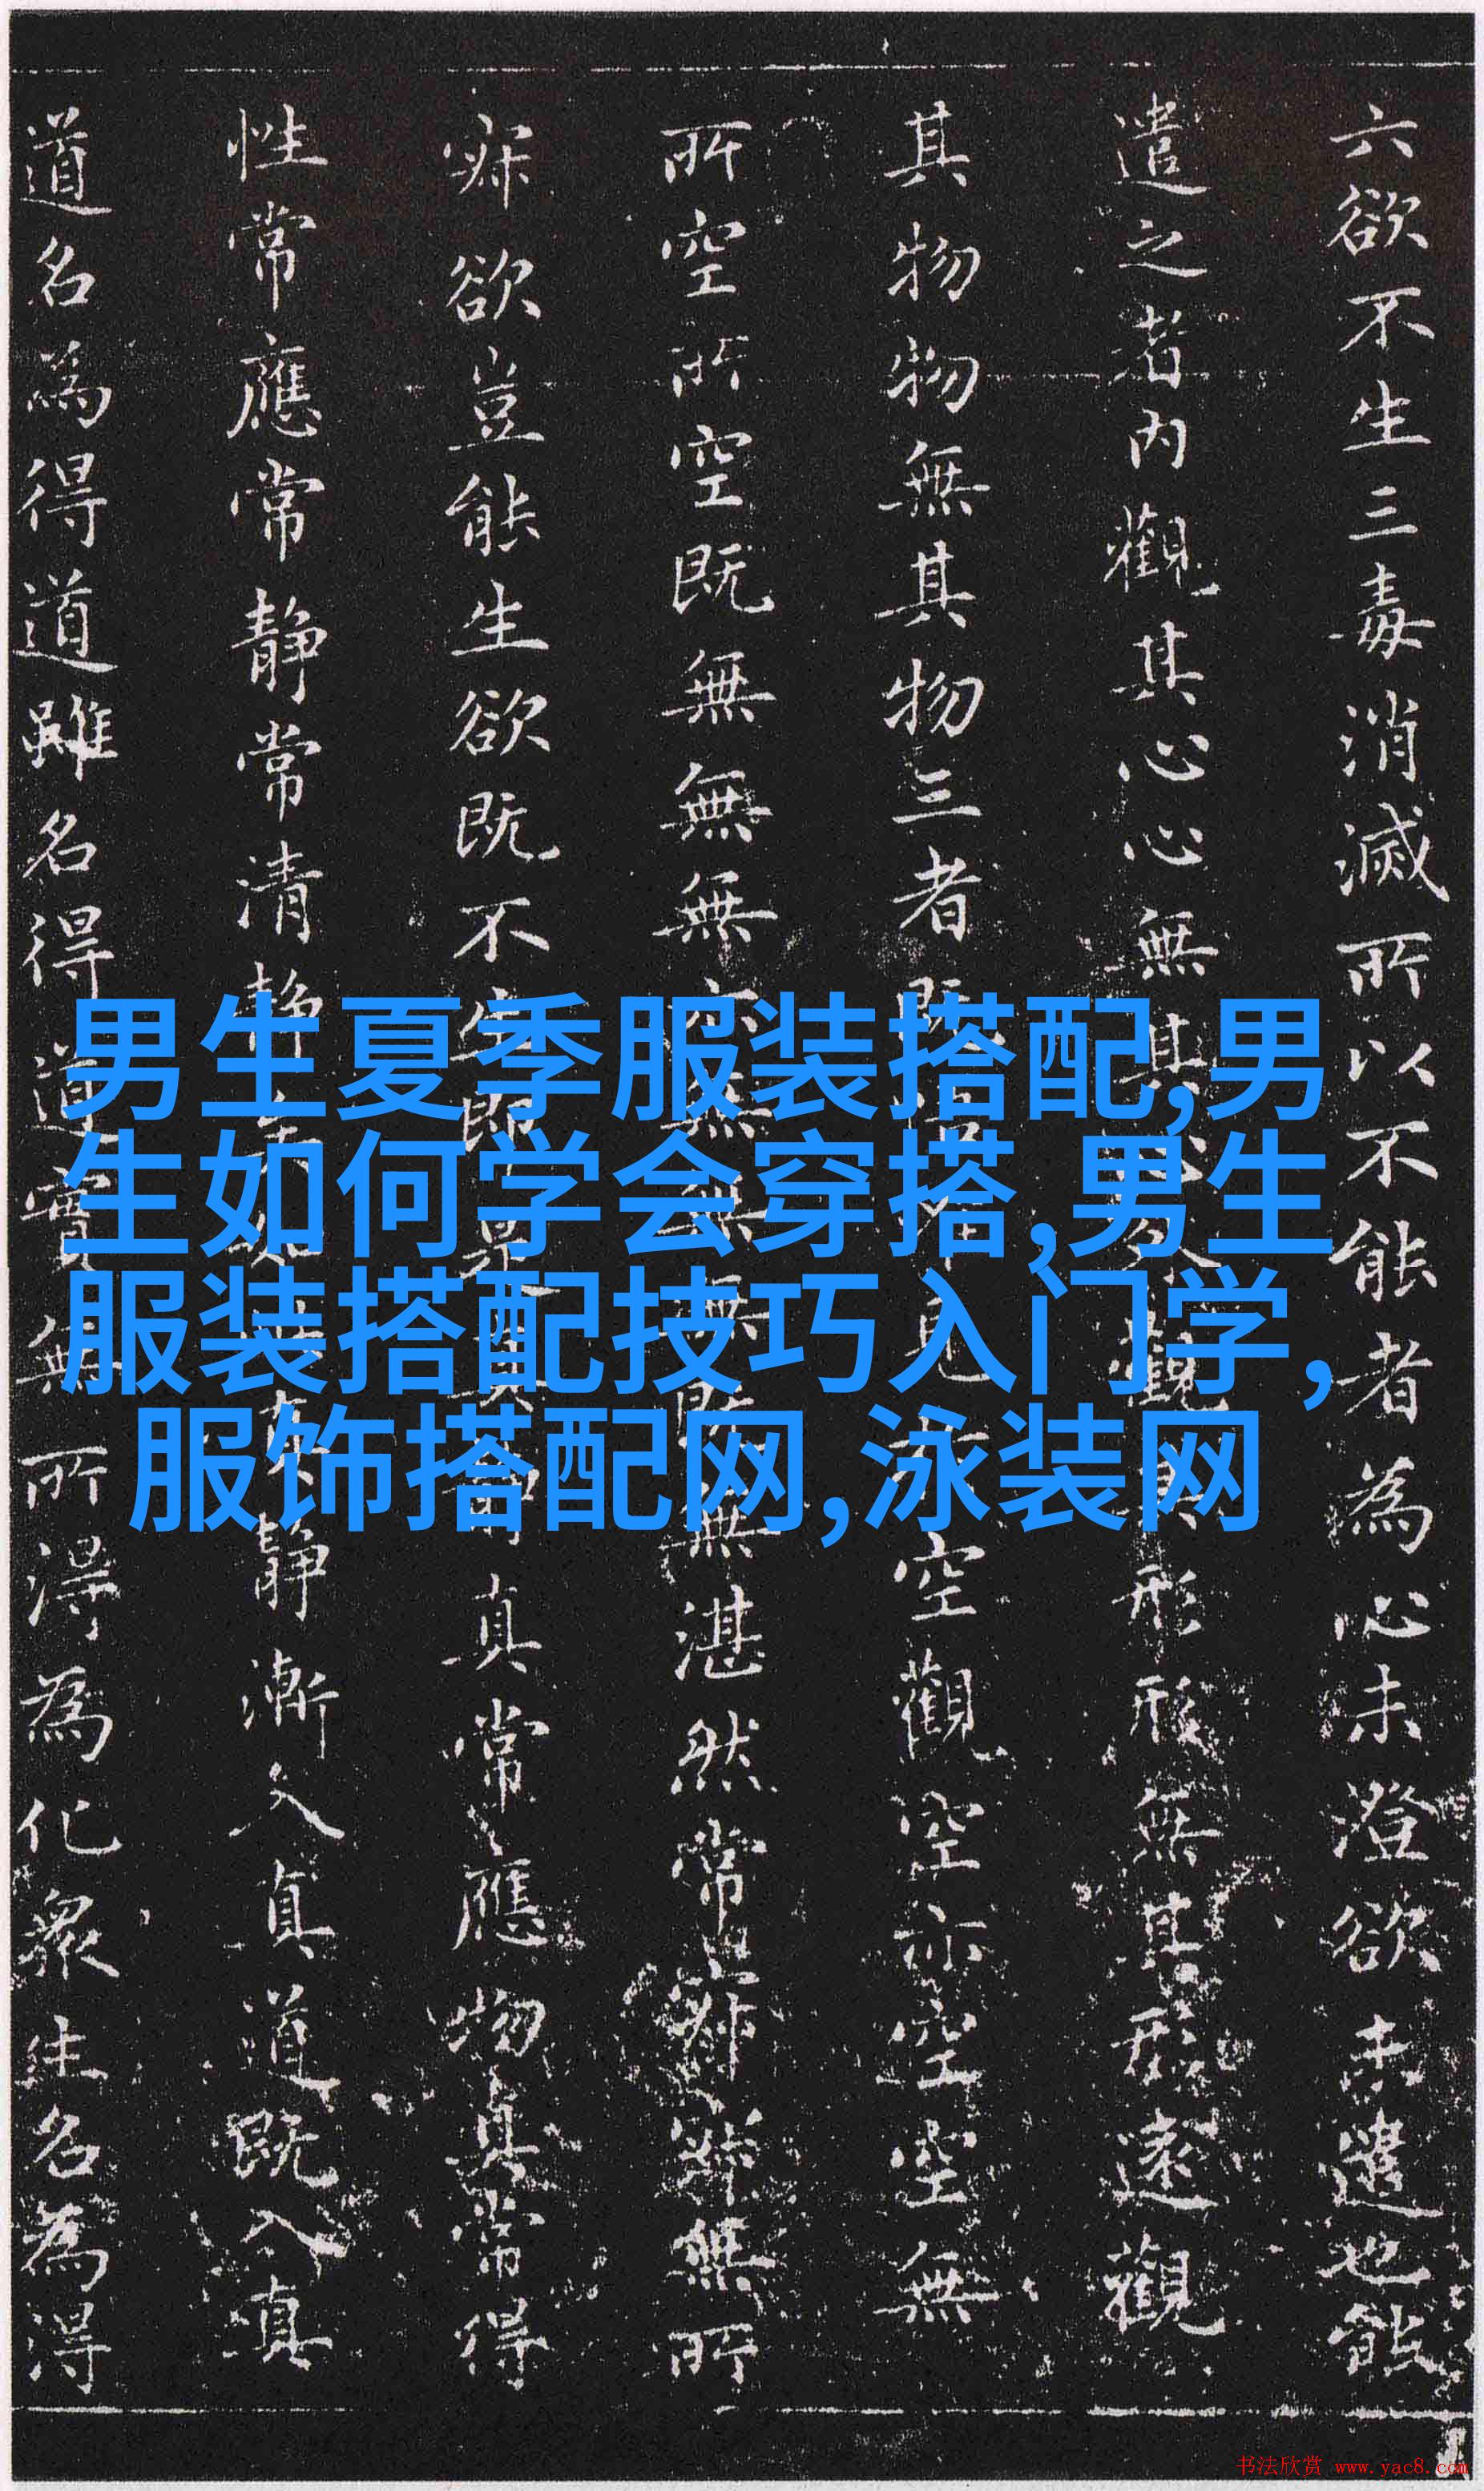 六欲不生三毒消滅所以不能者為心未澄欲未遣也能
遣之者内觀其心心無其心外觀其形形無其形遠觀
其物物無其物三者既見空觀空亦空空無
所空所空既無無無亦無無無既無湛然常寂寂無所
寂欲豈能生欲既不生即是真静真常應物真常得
性常應常静常清静矣静漸入真道既入真
道名為得道雖名得道實無所得為化衆生名為得
男生夏季服装搭配,男
生如何学会穿搭,男生
服装搭配技巧入门学,
服饰搭配网,泳装网
书法欣赏 www.yac8.com